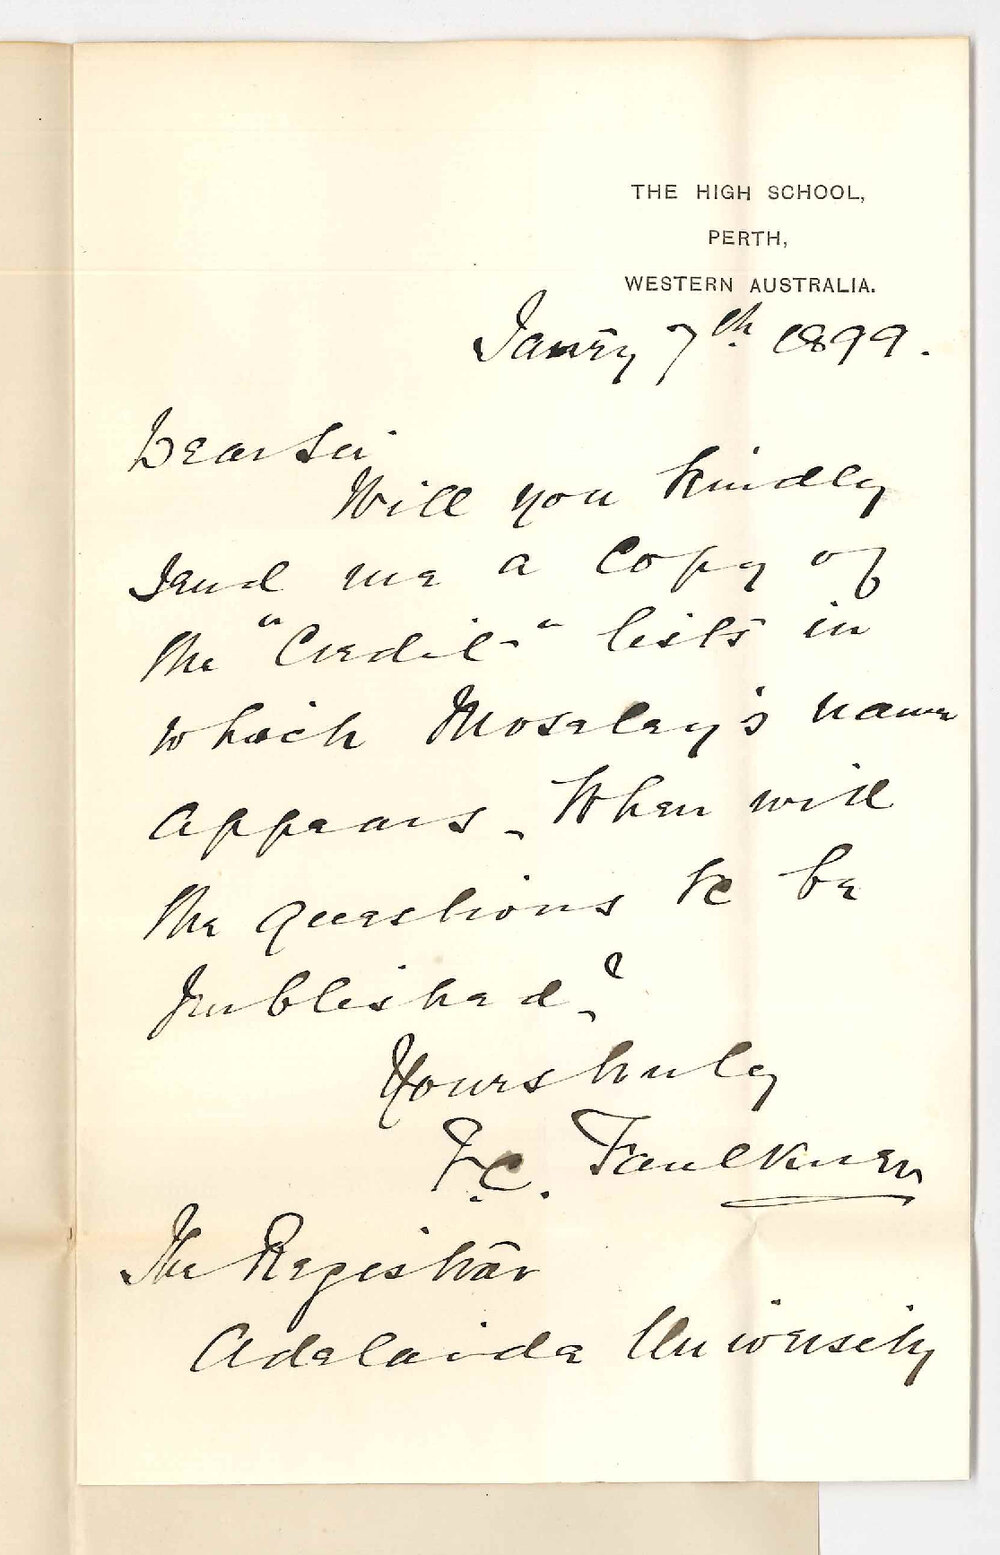 THE HIGH SCHOOL,
PERTH,
WESTERN AUSTRALIA.
Janry 7th 1899.
Dear Sir
Will you kindly
send me a copy of
the "Credit" lists in
which Moseley's name
appears. When will
the questions &c be
published?
Yours truly
F.C. Faulkner
The Registrar
Adelaide University